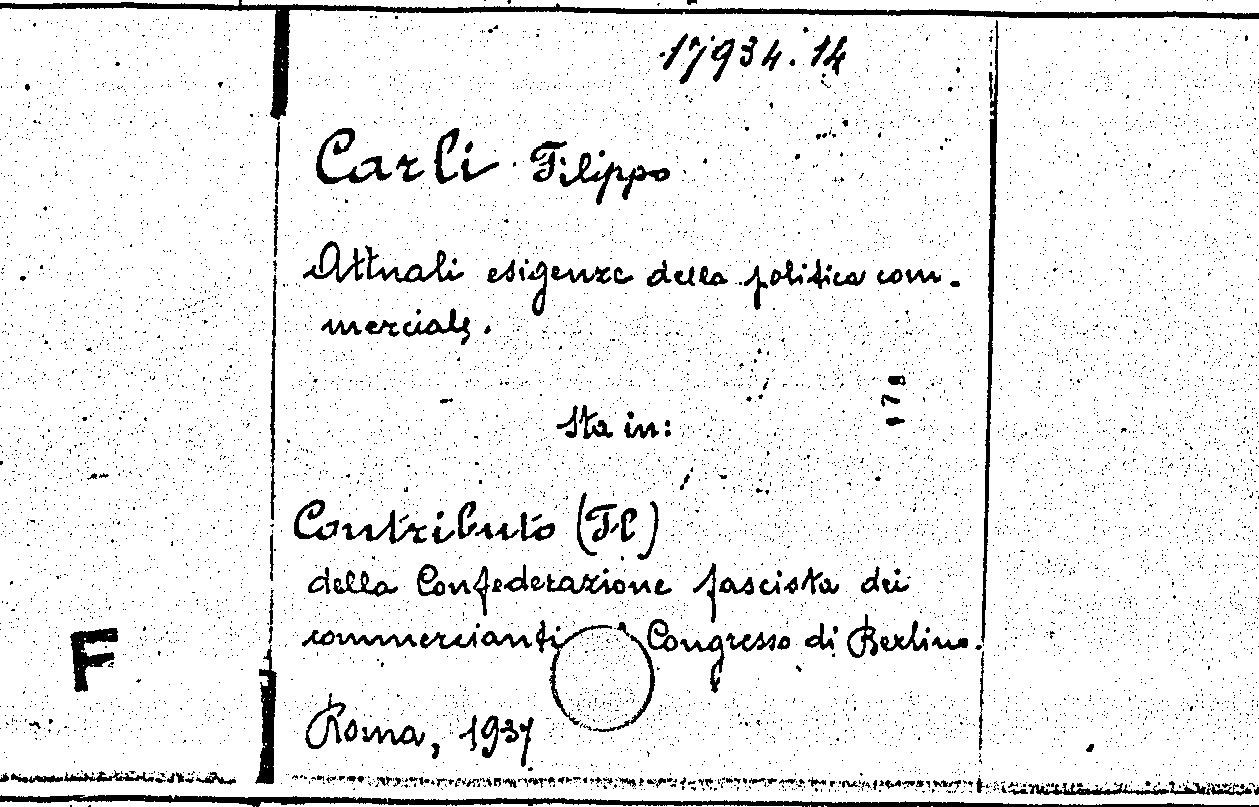 17934.14
Carli Filippo
Attuali esigenze della politica com-
merciale.
178
Sta in:
Contributo (Il)
della Confederazione fascista dei
commercianti Congresso di Berlino.
F
Roma, 1937